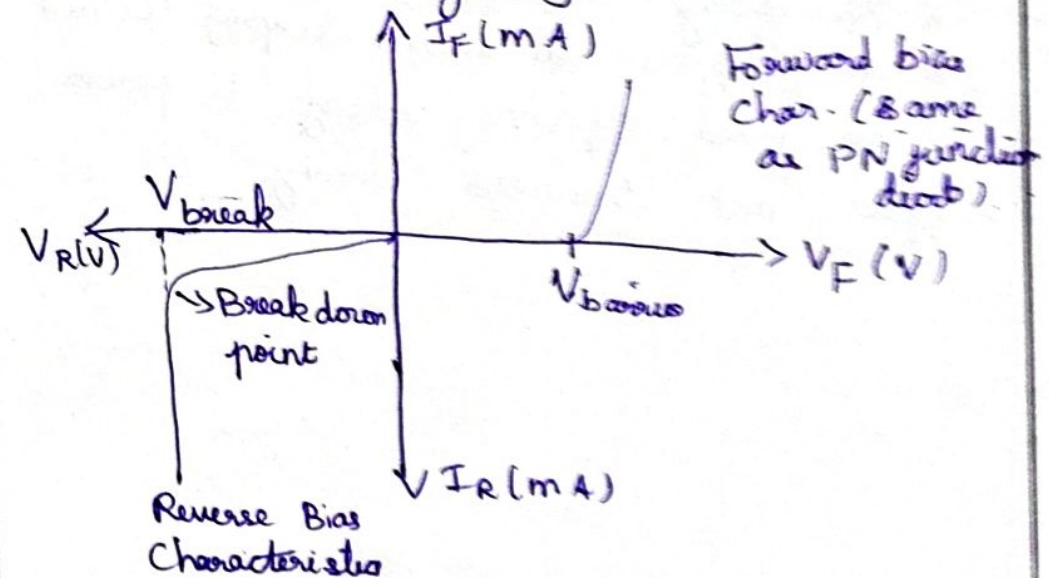 I_F (mA)
Forward bias
Char. (Same
as PN junction
diode)
V_break
V_R(V)
V_F (V)
V_barrier
Break down
point
I_R (mA)
Reverse Bias
Characteristics